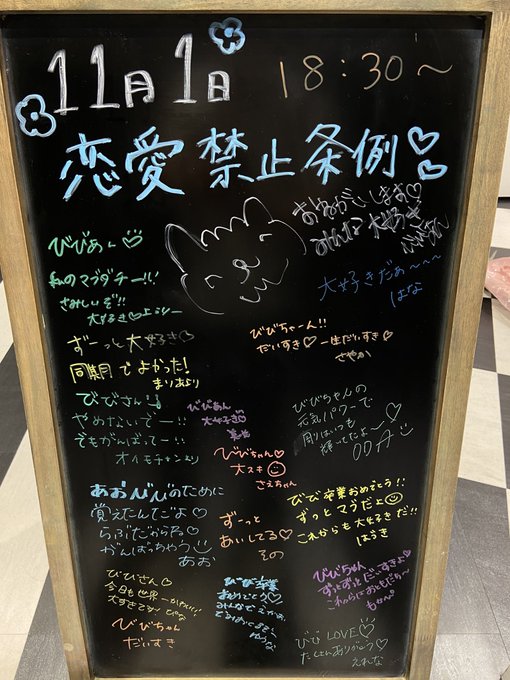 11月1日
18:30〜
恋愛禁止条例♡♡
おねがいします♡
みんな大好き
大好きだぁ〜〜〜
はな
びびあん♡
私のマブダチー!!
さみしいぞ!!
大好き♡
ずーっと大好き♡
同期でよかった!
まりあより
びびちゃーん!!
だいすき♡一生だいすき♡
さやか
びびさん!
やめないでー!!
でもがんばってー!!
オイモチャンより
びびあん
大好き♡
びびちゃん
大スキ
さえちゃん
びびちゃんの
元気パワーで
周りはいつも
輝いてたよ〜♡
あおんびびのために
覚えたんだよ♡
らぶだからね♡
がんばっちゃう
あお
ずーっと
あいしてる♡
その
びび卒業おめでとう!!
ずっとマブだよ
これからも大好きだ!!
はるき
びびさん♡
今日も世界一かわいい!
大すきです〜
びびちゃん
だいすき
びび卒業
おめでとう♡
びびちゃん
ずっとずっとだいすきよ♡
これからもおともだち〜
びびLOVE♡
たくさんありがとう♡
えれな